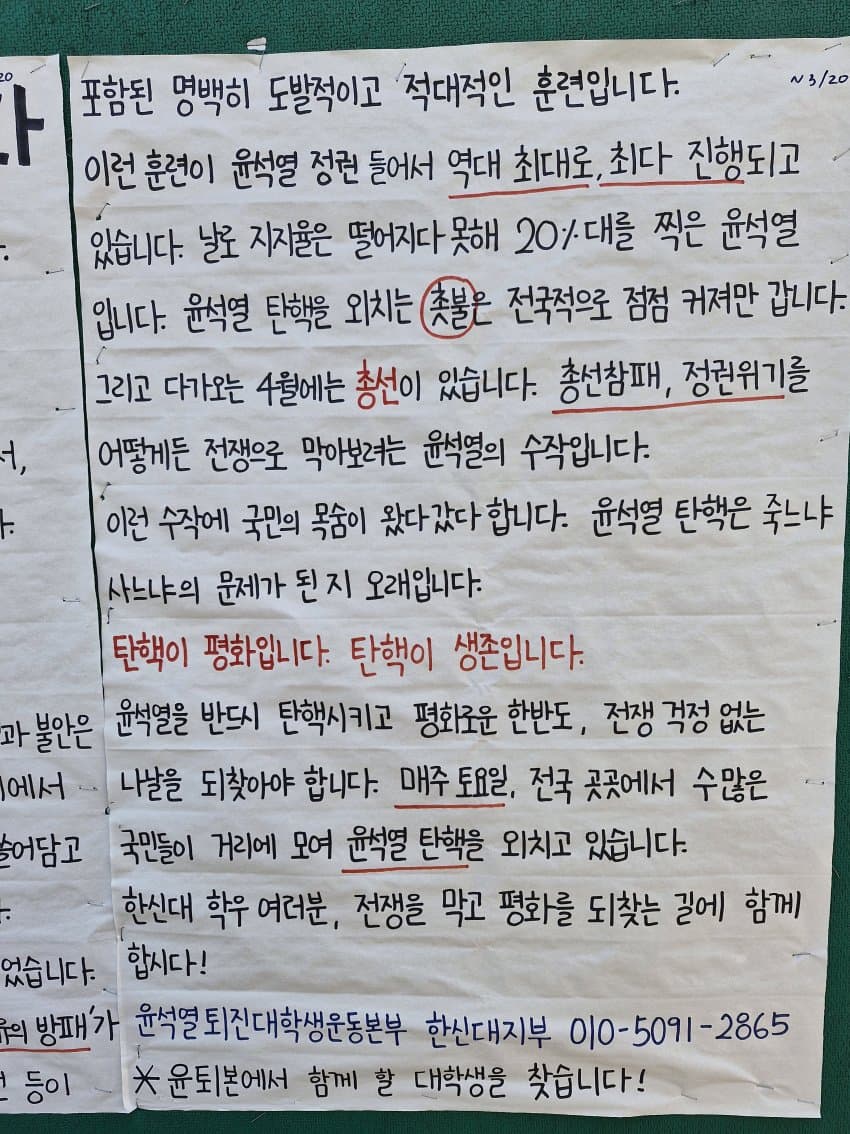 ~3/20
포함된 명백히 도발적이고 적대적인 훈련입니다.
이런 훈련이 윤석열 정권 들어서 역대 최대로, 최다 진행되고
있습니다. 날로 지지율은 떨어지다 못해 20%대를 찍은 윤석열
입니다. 윤석열 탄핵을 외치는 촛불은 전국적으로 점점 커져만 갑니다.
그리고 다가오는 4월에는 총선이 있습니다. 총선참패, 정권위기를
어떻게든 전쟁으로 막아보려는 윤석열의 수작입니다.
이런 수작에 국민의 목숨이 왔다갔다 합니다. 윤석열 탄핵은 죽느냐
사느냐의 문제가 된 지 오래입니다.
탄핵이 평화입니다. 탄핵이 생존입니다.
윤석열을 반드시 탄핵시키고 평화로운 한반도, 전쟁 걱정 없는
나날을 되찾아야 합니다. 매주 토요일, 전국 곳곳에서 수많은
국민들이 거리에 모여 윤석열 탄핵을 외치고 있습니다.
한신대 학우 여러분, 전쟁을 막고 평화를 되찾는 길에 함께
합시다!
윤석열퇴진대학생운동본부 한신대지부 010-5091-2865
* 윤퇴본에서 함께 할 대학생을 찾습니다!
과 불안은
에서
쓸어담고
었습니다.
유의 방패'가
등이